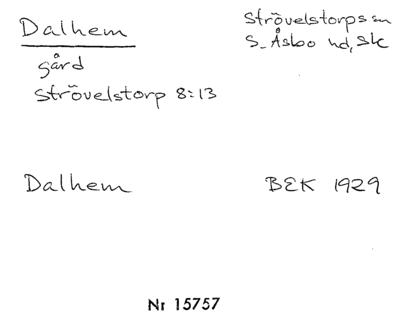 Dalhem
Strövelstorps sn
S. Åsbo hd, Sk
gård
Strövelstorp 8:13
Dalhem
BEK 1929
Nr 15757